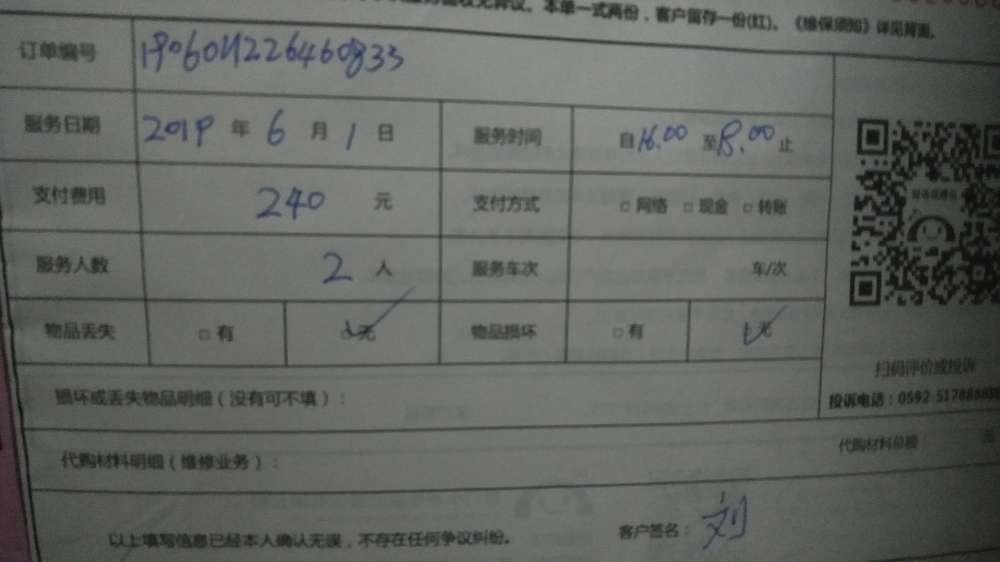 本单一式两份，客户留存一份(红)。《维保须知》详见背面。
订单编号 190601226460833
服务日期 2019 年 6 月 1 日 服务时间 自 16.00 至 18.00 止
支付费用 240 元 支付方式 □ 网络 □ 现金 □ 转账
服务人数 2 人 服务车次 车/次
物品丢失 □ 有 无 物品损坏 □ 有 无
扫码评价或投诉
损坏或丢失物品明细（没有可不填）：
投诉电话：0592-5178888
代购材料明细（维修业务）： 代购材料总额 元
以上填写信息已经本人确认无误，不存在任何争议纠纷。 客户签名： 刘